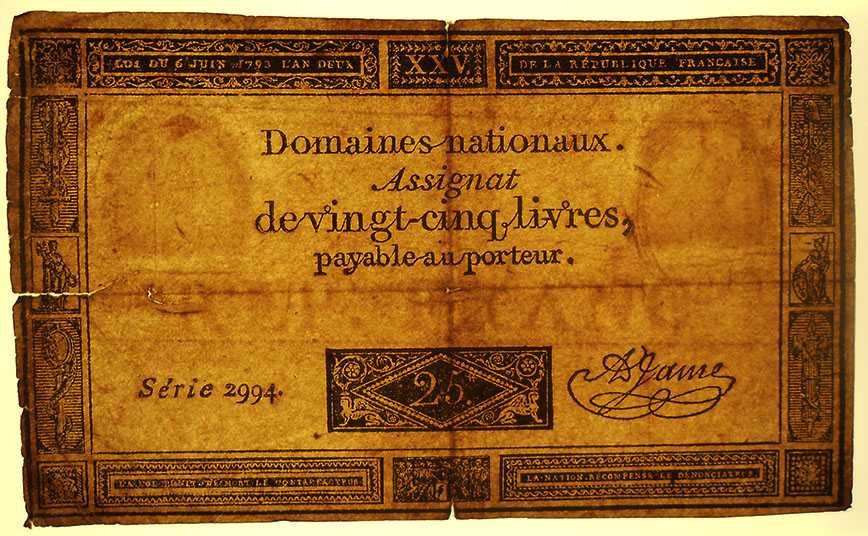 LOI DU 6 JUIN 1793 L'AN DEUX
XXV
DE LA RÉPUBLIQUE FRANÇAISE
Domaines nationaux.
Assignat
de vingt-cinq livres,
payable au porteur.
Série 2994.
25.
A Jame
LA LOI PUNIT DE MORT LE CONTREFACTEUR
LA NATION RÉCOMPENSE LE DÉNONCIATEUR